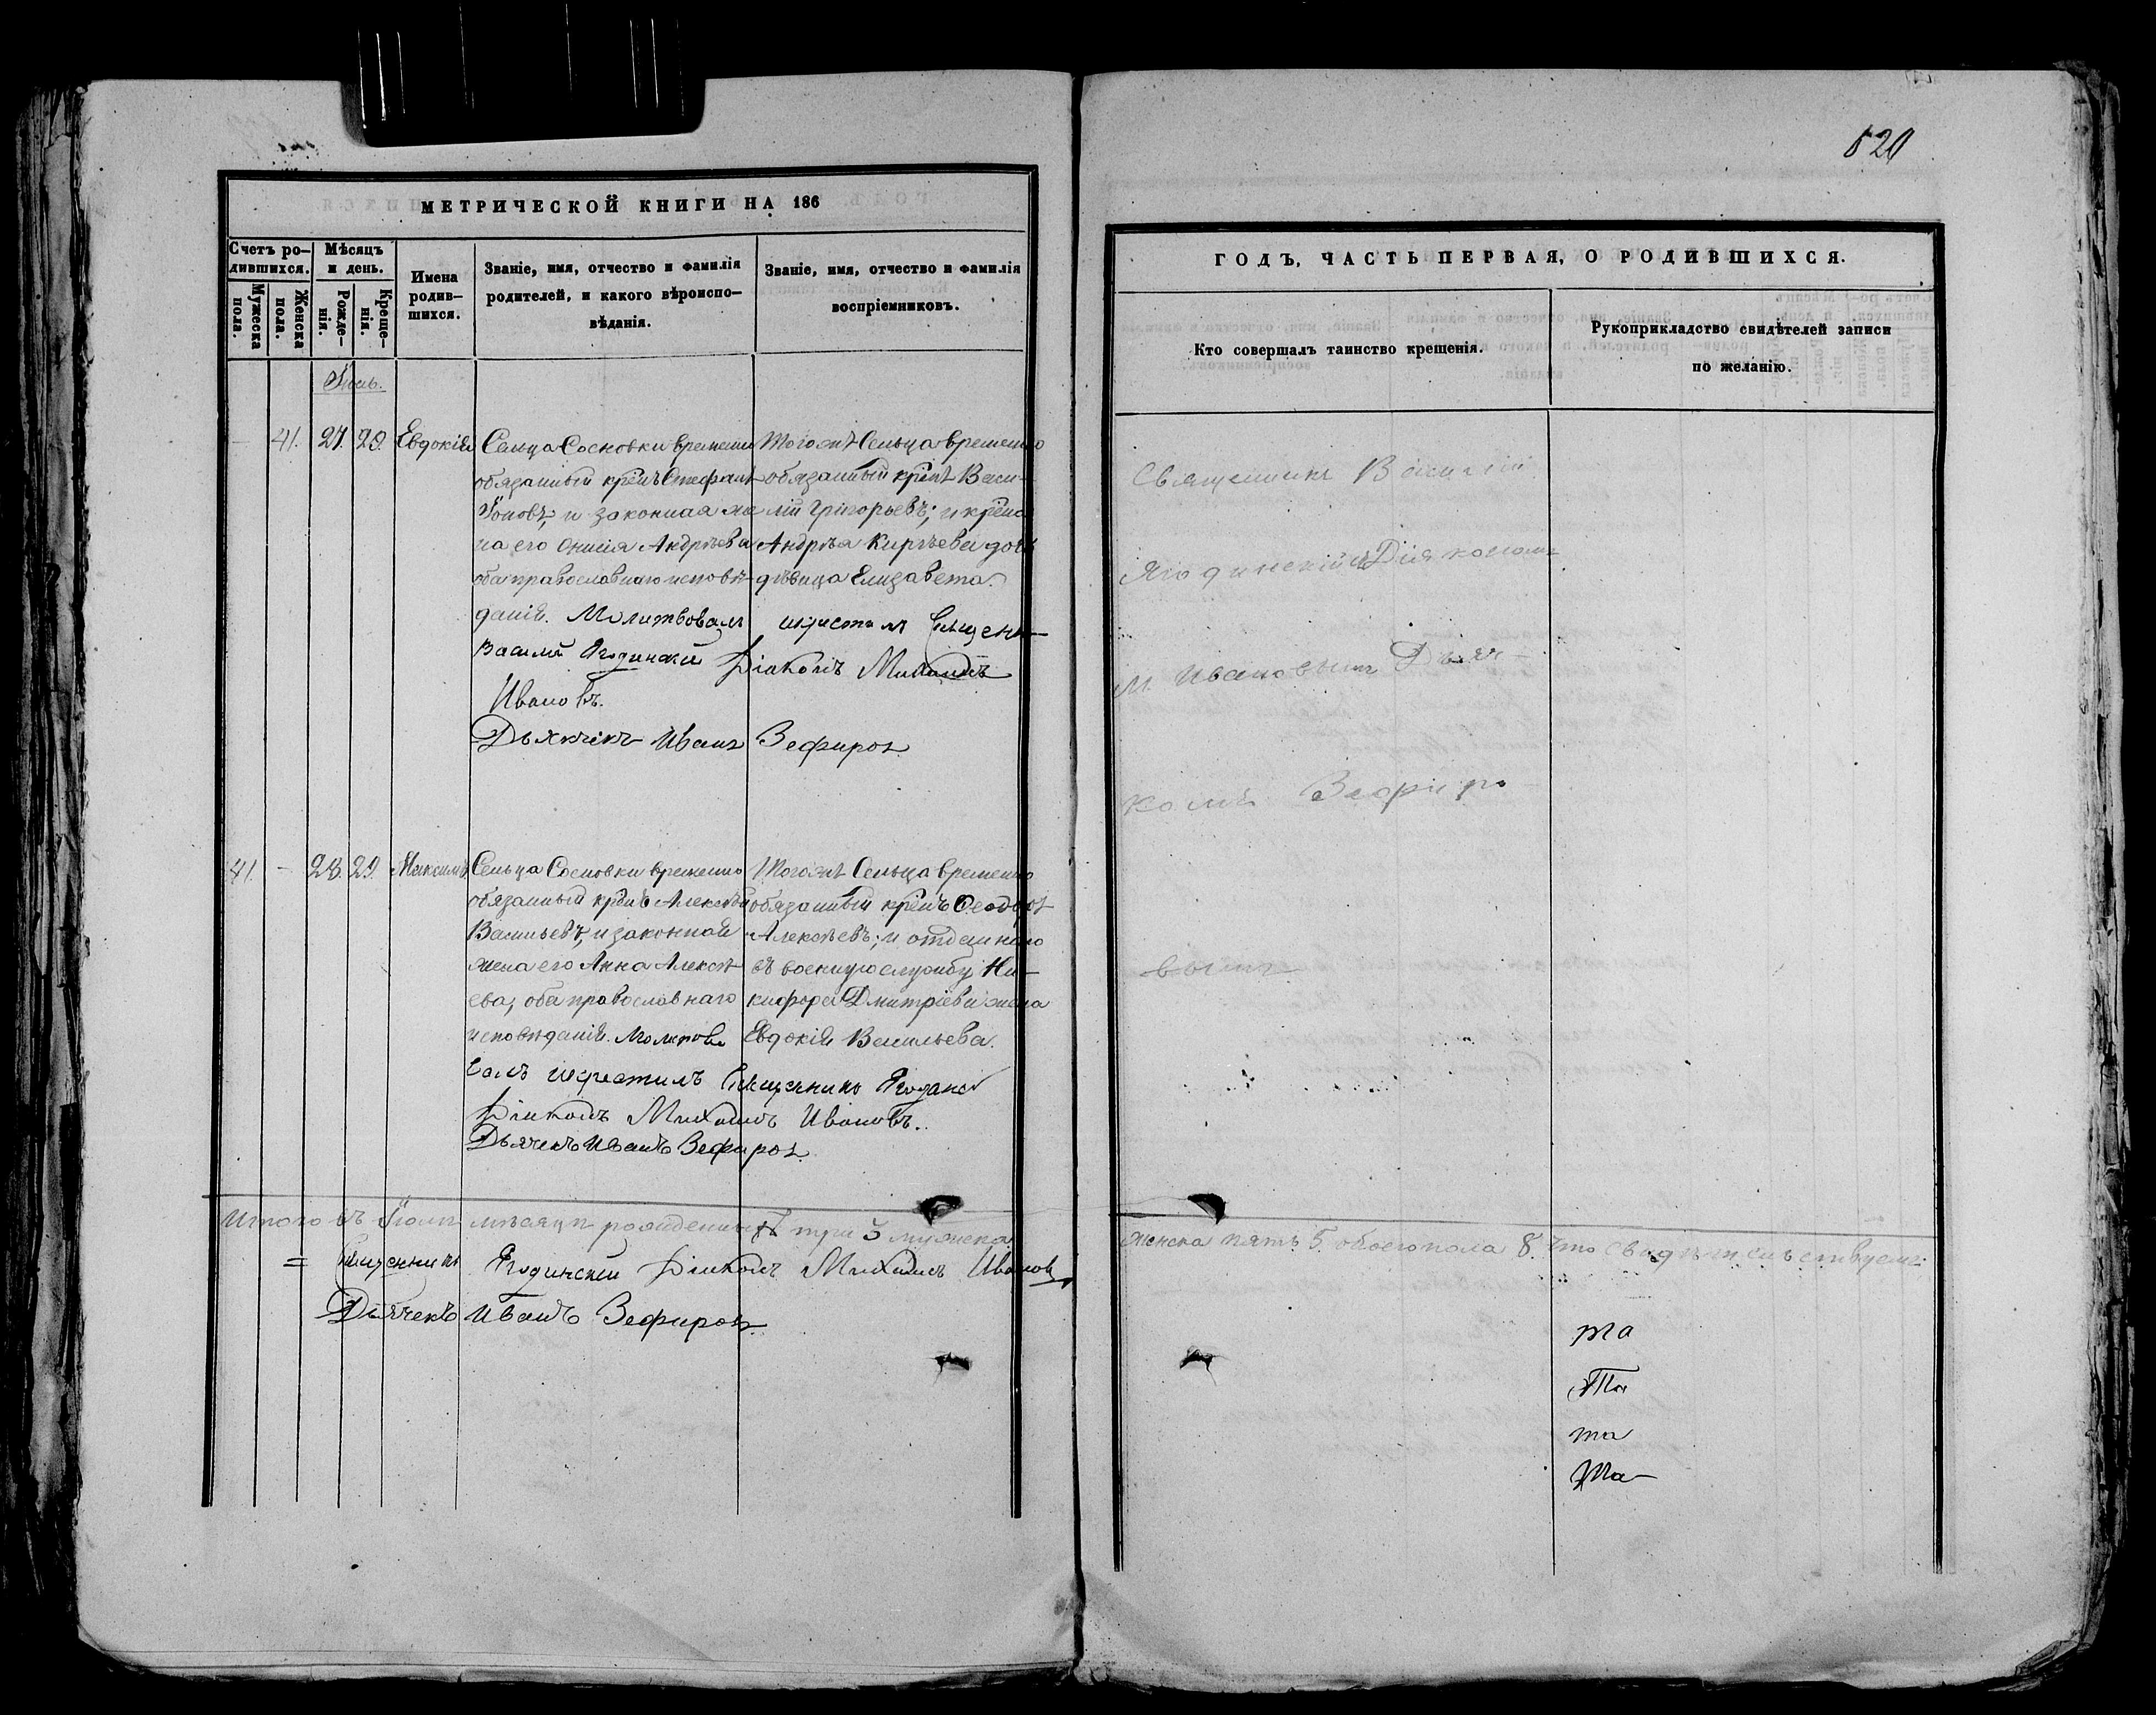 520
МЕТРИЧЕСКОЙ КНИГИ НА 186
Счетъ ро-
дившихся.
Мужеска
пола.
Женска
пола.
Мѣсяцъ
и день.
Рожде-
нія.
Креще-
нія.
Имена
родив-
шихся.
Званіе, имя, отчество и фамилія
родителей, и какого вѣроиспо-
вѣданія.
Званіе, имя, отчество и фамилія
воспріемниковъ.
41. 27. 28. Евдокія
Сельца Сосновки временно
обязанный крѣнъ Стефанъ
Іоновъ, и законная же
на его Анисія Андрѣева
оба православнаго исповѣ-
данія. Молитвовалъ икрестилъ Священ-
Василій Ягодинскій Діаконъ Михаилъ
Ивановъ.
Дьячекъ Иванъ Зефировъ
Тогожъ Сельца временно
обязанный крѣнъ Васи-
лій Григорьевъ; и крѣна
Андрѣя Киръева дочь
дѣвица Елизавета.
41. - 28. 29. Максимъ
Сельца Сосновки временно
обязанный крѣнъ Алексѣй
Васильевъ, и законная
жена его Анна Алексѣ-
ева, оба православнаго
исповѣданія. Молитво
валъ икрестилъ Священникъ Ягодинс
Діаконъ Михаилъ Ивановъ.
Дьячекъ Иванъ Зефировъ
Тогожъ Сельца временно
обязанный крѣнъ Ѳеодоръ
Алексѣевъ; и отданнаго
въ военную службу Ни-
кифора Дмитріева жена
Евдокія Васильева.
Итого въ мѣсяцѣ рожденныхъ три 3 мужска
= Священникъ Ягодинскій Діаконъ Михаилъ Ивановъ
Дьячекъ Иванъ Зефировъ
ГОДЪ, ЧАСТЬ ПЕРВАЯ, О РОДИВШИХСЯ.
Кто совершалъ таинство крещенія.
Рукоприкладство свидѣтелей записи
по желанію.
Священникъ Василій
Ягодинскій съ Діякономъ
М. Ивановымъ Дьяч-
комъ Зефиро
вымъ
женска пять 5. обоегопола 8. что свидѣтельствуемъ:
та
Та
та
Та